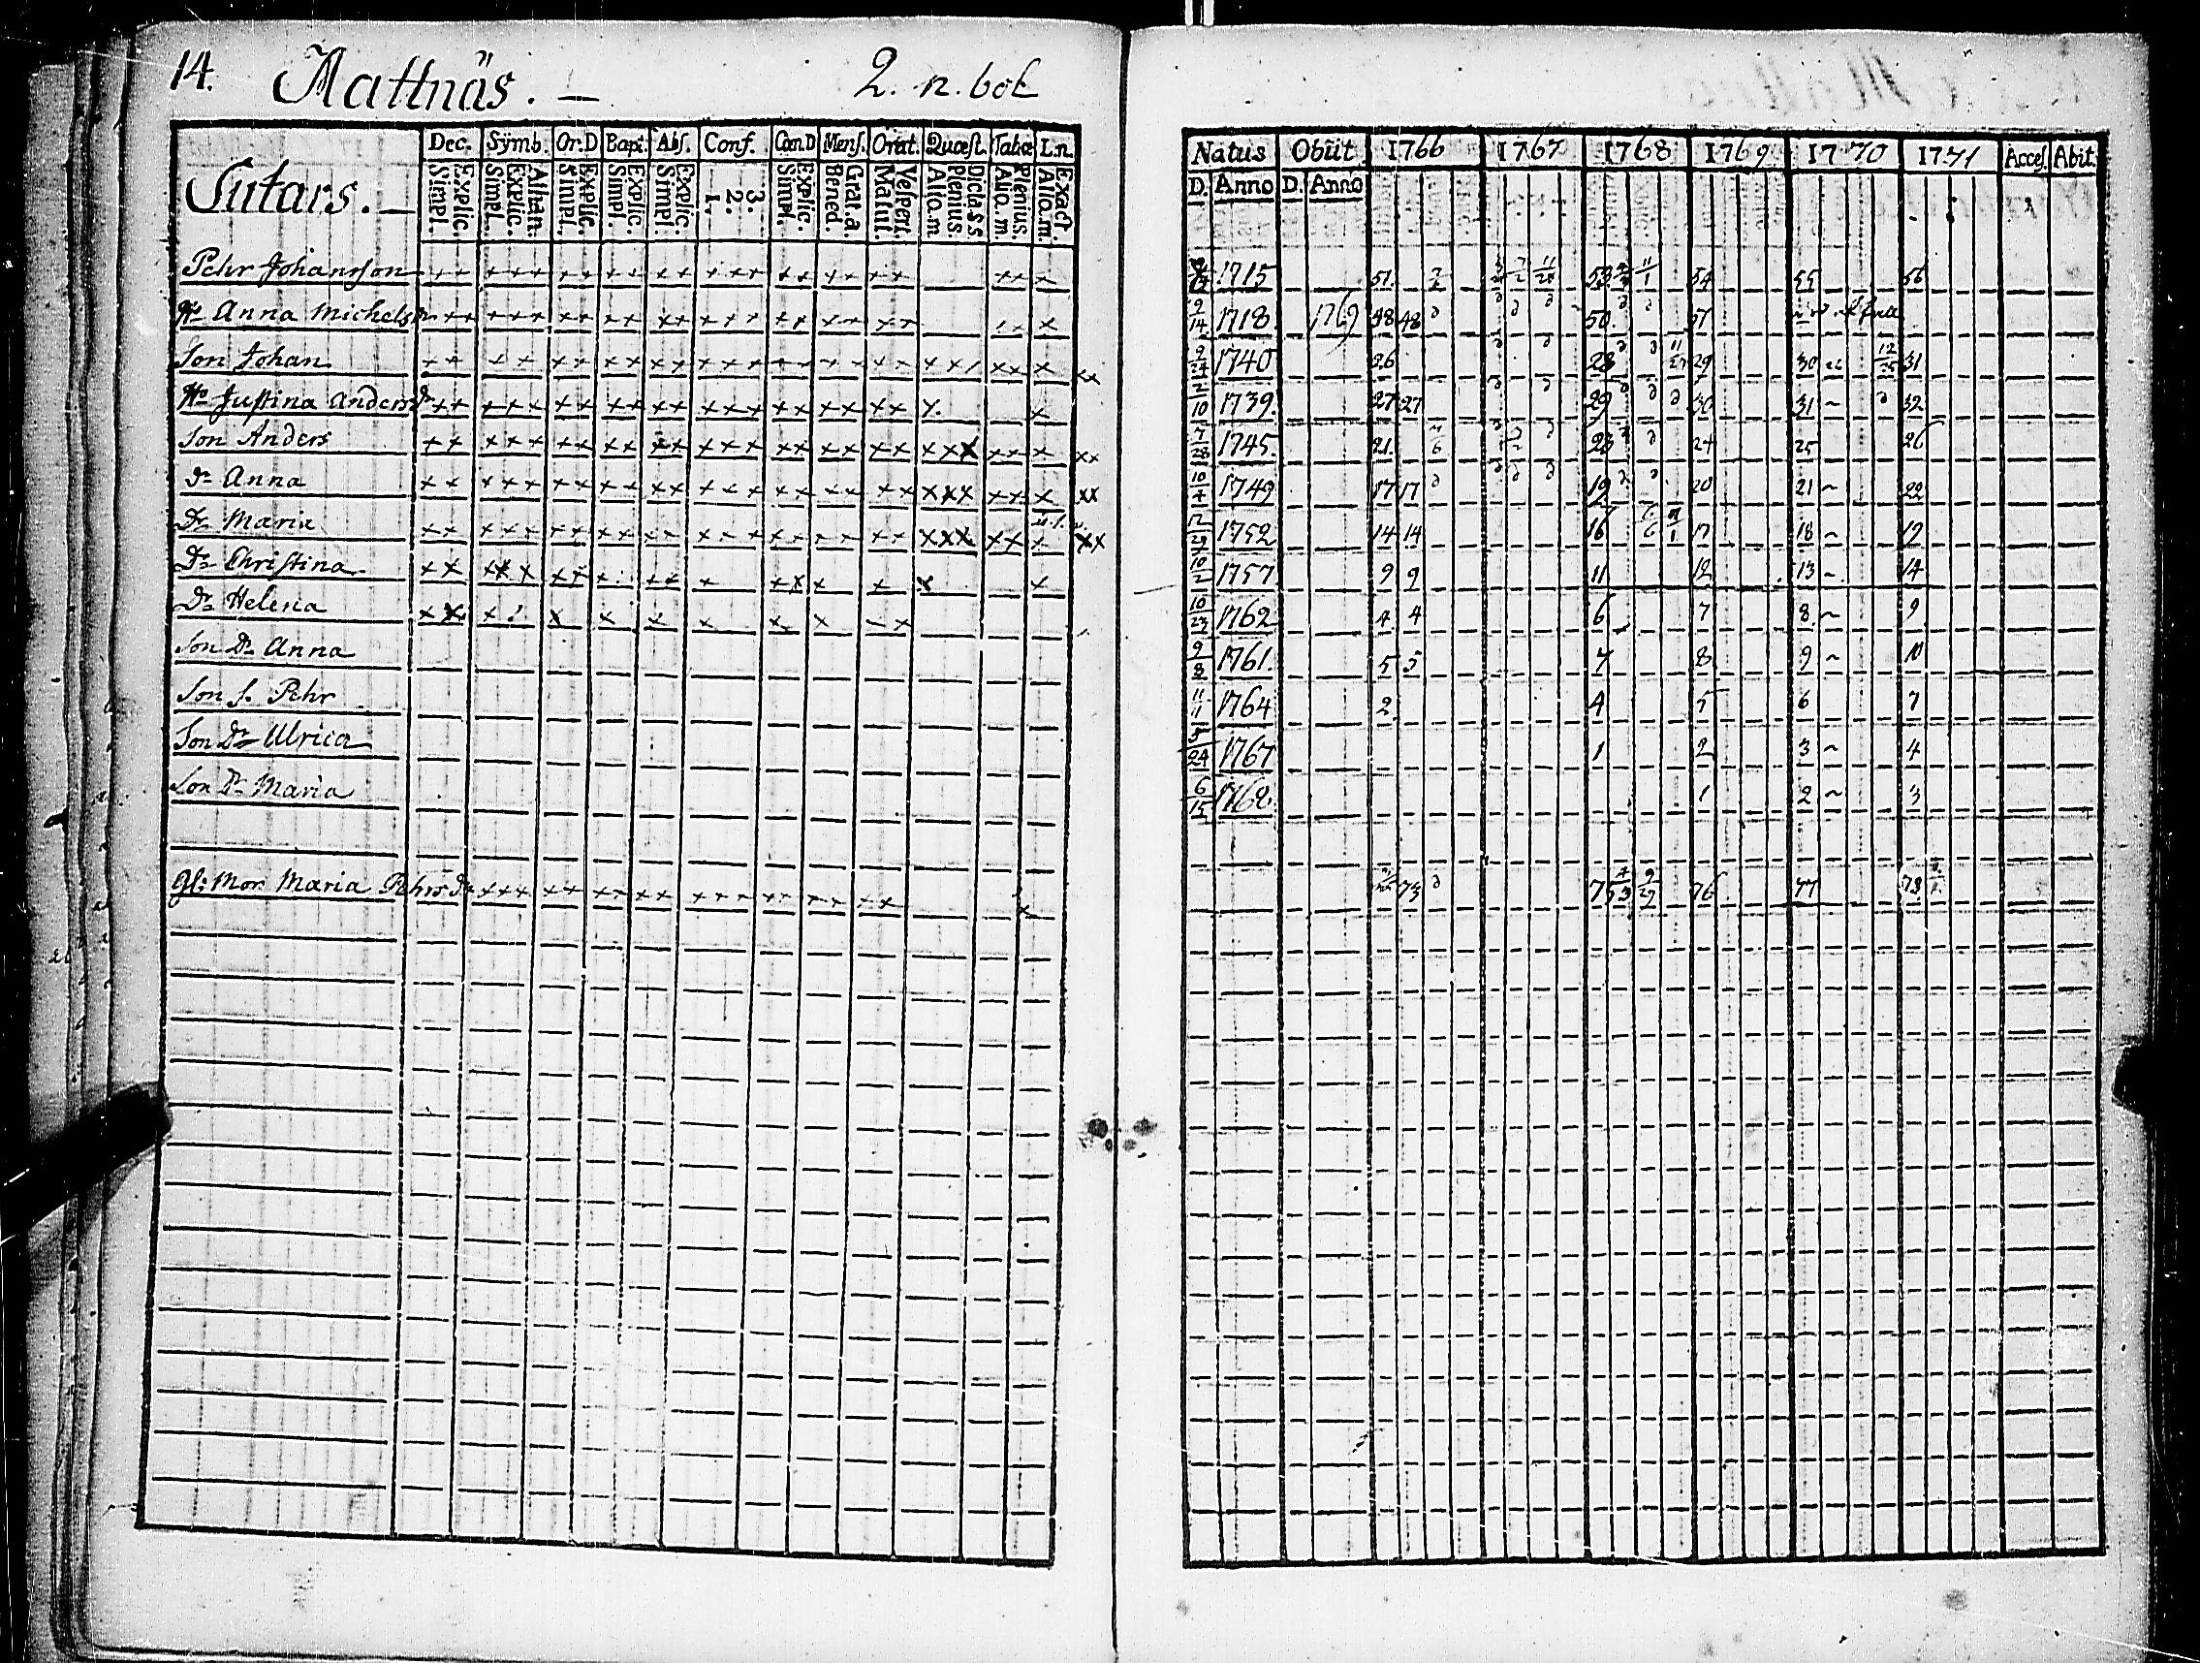 14. Mattnäs. — 2. n. bok
Sutars. —
Dec. Symb. Or.D Bapt. Abs. Conf. Cœn.D Mens. Orat. Quæst. Tabœ L.n.
Simpl. Explic. Simpl. Explic. Athan. Simpl. Explic. Simpl. Explic. Simpl. Explic. 1. 2. 3. Simpl. Explic. Bened. Grat.a. Matut. Vespert. Alio.m Plenius Dicta s s. Alio.m. Plenius. Alio.m. Exact.
Natus Obiit 1766 1767 1768 1769 1770 1771 Acces. Abit.
D. Anno D. Anno
Pehr Johansson 1715 51. 53 54 55 56
Hu Anna Michelsdr 9/14 1718 1769 48 48 50 51
Son Johan 9/24 1740 26 28 29 30 12/25 31
Hu Justina Andersdr 2/10 1739. 27 27 29 30 31 ~ 32
Son Anders 7/28 1745. 21. 23 24 25 26
Dr Anna 10/4 1749 17 17 19 20 21 ~ 22
Dr Maria 12/29 1752 14 14 16 17 18 ~ 19
Dr Christina 10/2 1757 9 9 11 12 13 ~ 14
Dr Helena 10/23 1762 4 4 6 7 8 ~ 9
Son Dr Anna 9/8 1761. 5 5 7 8 9 ~ 10
Son s. Pehr 11/11 1764 2 4 5 6 7
Son Dr Ulrica 5/24 1767 1 2 3 ~ 4
Son Dr Maria 6/15 1768 1 2 ~ 3
Gl: Mor Maria Pehrsdr 73 75 76 77 78